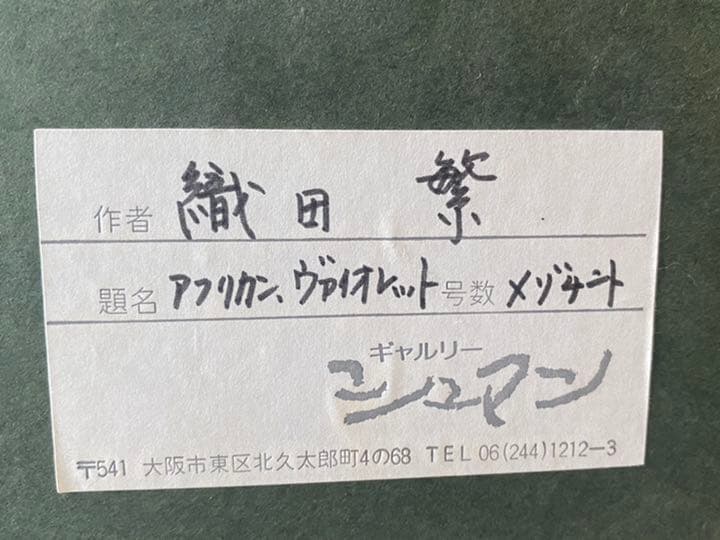 作者 織田 繁
題名 アフリカン、ヴァイオレット 号数 メゾチント
ギャルリー
シュマン
〒541 大阪市東区北久太郎町4の68 TEL 06(244)1212−3